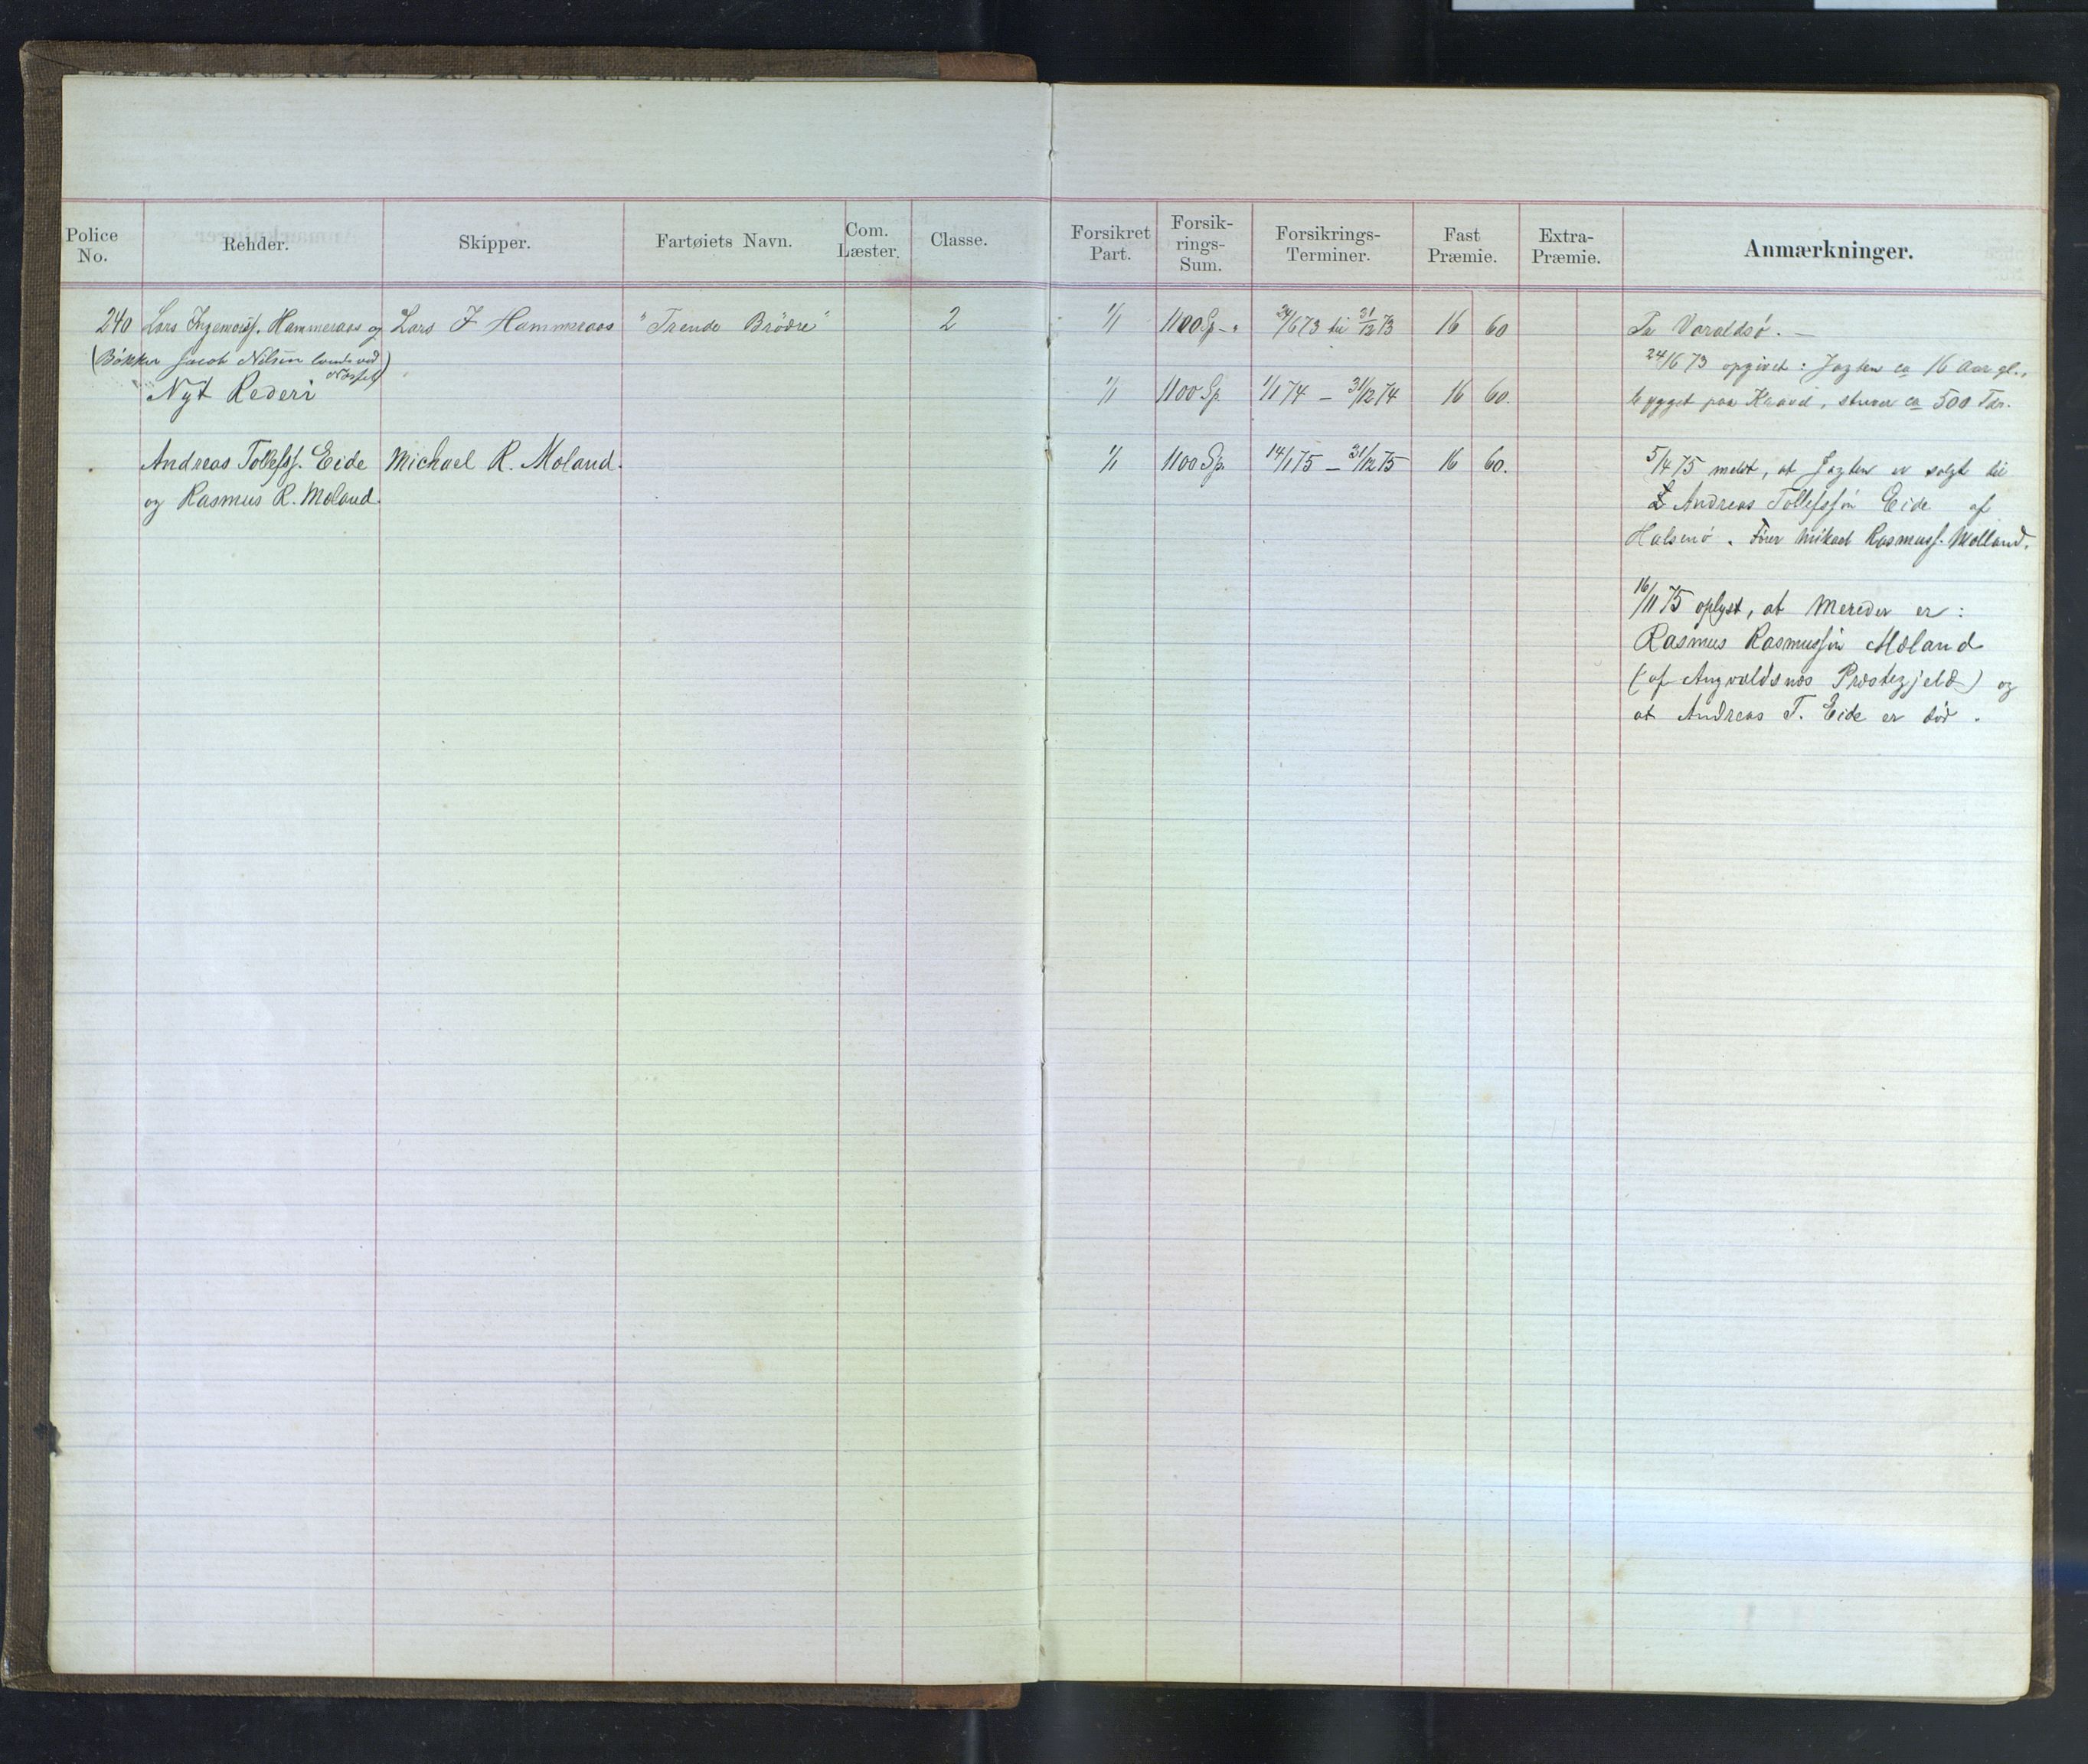 Police No.
Rehder.
Skipper.
Fartøiets Navn.
Com. Læster.
Classe.
Forsikret Part.
Forsik-rings-Sum.
Forsikrings-Terminer.
Fast Præmie.
Extra-Præmie.
Anmærkninger.
240 Lars Ingemarss. Hammeraas og Lars I Hammeraas "Trende Brödre" 2 1/1 1100 Sp - " 24/6 73 til 31/12 73 16 60 Fra Varaldsö. —
(Bökker Jacob Nilsen
Nyt Rederi 1/1 1100 Sp. 1/1 74 — 31/12 74 16 60.
24/6 73 opgivet: Jagten ca 16 Aar gl.,
bygget paa Kravel, stuver ca 500 Tdr.
Andreas Tollefss. Eide Michael R. Moland. 1/1 1100 Sp. 14/1 75 — 31/12 75 16 60.
og Rasmus R. Moland.
5/4 75 meldt, at Jagten er solgt til
Andreas Tollefssön Eide af
Halsnö. Förer Mikael Rasmuss. Molland.
16/11 75 oplyst, at Mereder er:
Rasmus Rasmussön Moland
(af Augvaldsnæs Præstegjeld) og
at Andreas T. Eide er död.